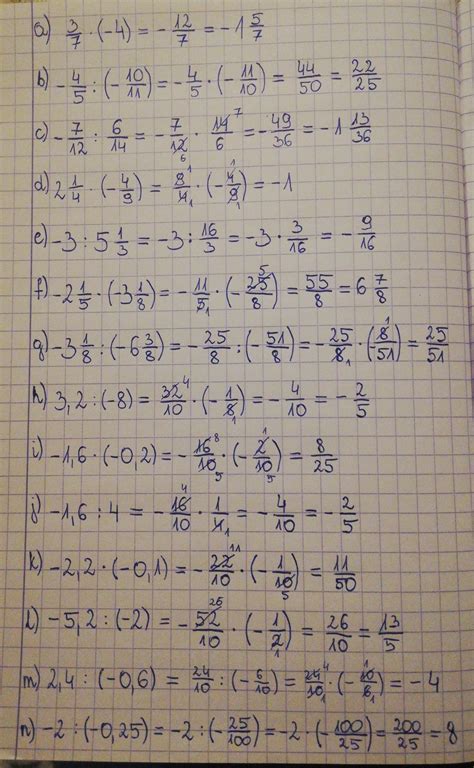 a) 3/7 · (-4) = -12/7 = -1 5/7
b) -4/5 : (-10/11) = -4/5 · (-11/10) = 44/50 = 22/25
c) -7/12 : 6/14 = -7/12 6 · 14 7/6 = -49/36 = -1 13/36
d) 2 1/4 · (-4/9) = 9 1/4 1 · (-4 1/9 1) = -1
e) -3 : 5 1/3 = -3 : 16/3 = -3 · 3/16 = -9/16
f) -2 1/5 · (-3 1/8) = -11/5 1 · (-25 5/8) = 55/8 = 6 7/8
g) -3 1/8 : (-6 3/8) = -25/8 : (-51/8) = -25/8 1 · (8 1/51) = 25/51
h) 3,2 : (-8) = 32 4/10 · (-1/8 1) = -4/10 = -2/5
i) -1,6 · (-0,2) = -16 8/10 5 · (-2 1/10 5) = 8/25
j) -1,6 : 4 = -16 4/10 · 1/4 1 = -4/10 = -2/5
k) -2,2 · (-0,1) = -22 11/10 · (-1/10 5) = 11/50
l) -5,2 : (-2) = -52 26/10 · (-1/2 1) = 26/10 = 13/5
m) 2,4 : (-0,6) = 24/10 : (-6/10) = 24 4/10 1 · (-10 1/6 1) = -4
n) -2 : (-0,25) = -2 : (-25/100) = -2 · (-100/25) = 200/25 = 8